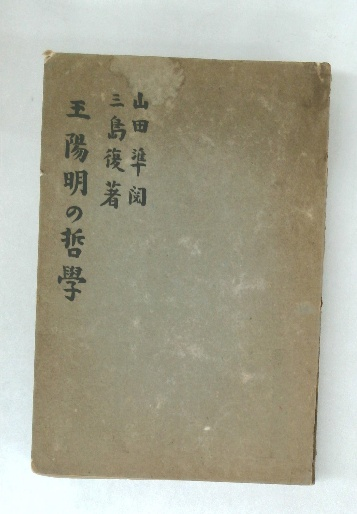 山田準閲
三島復著
王陽明の哲學